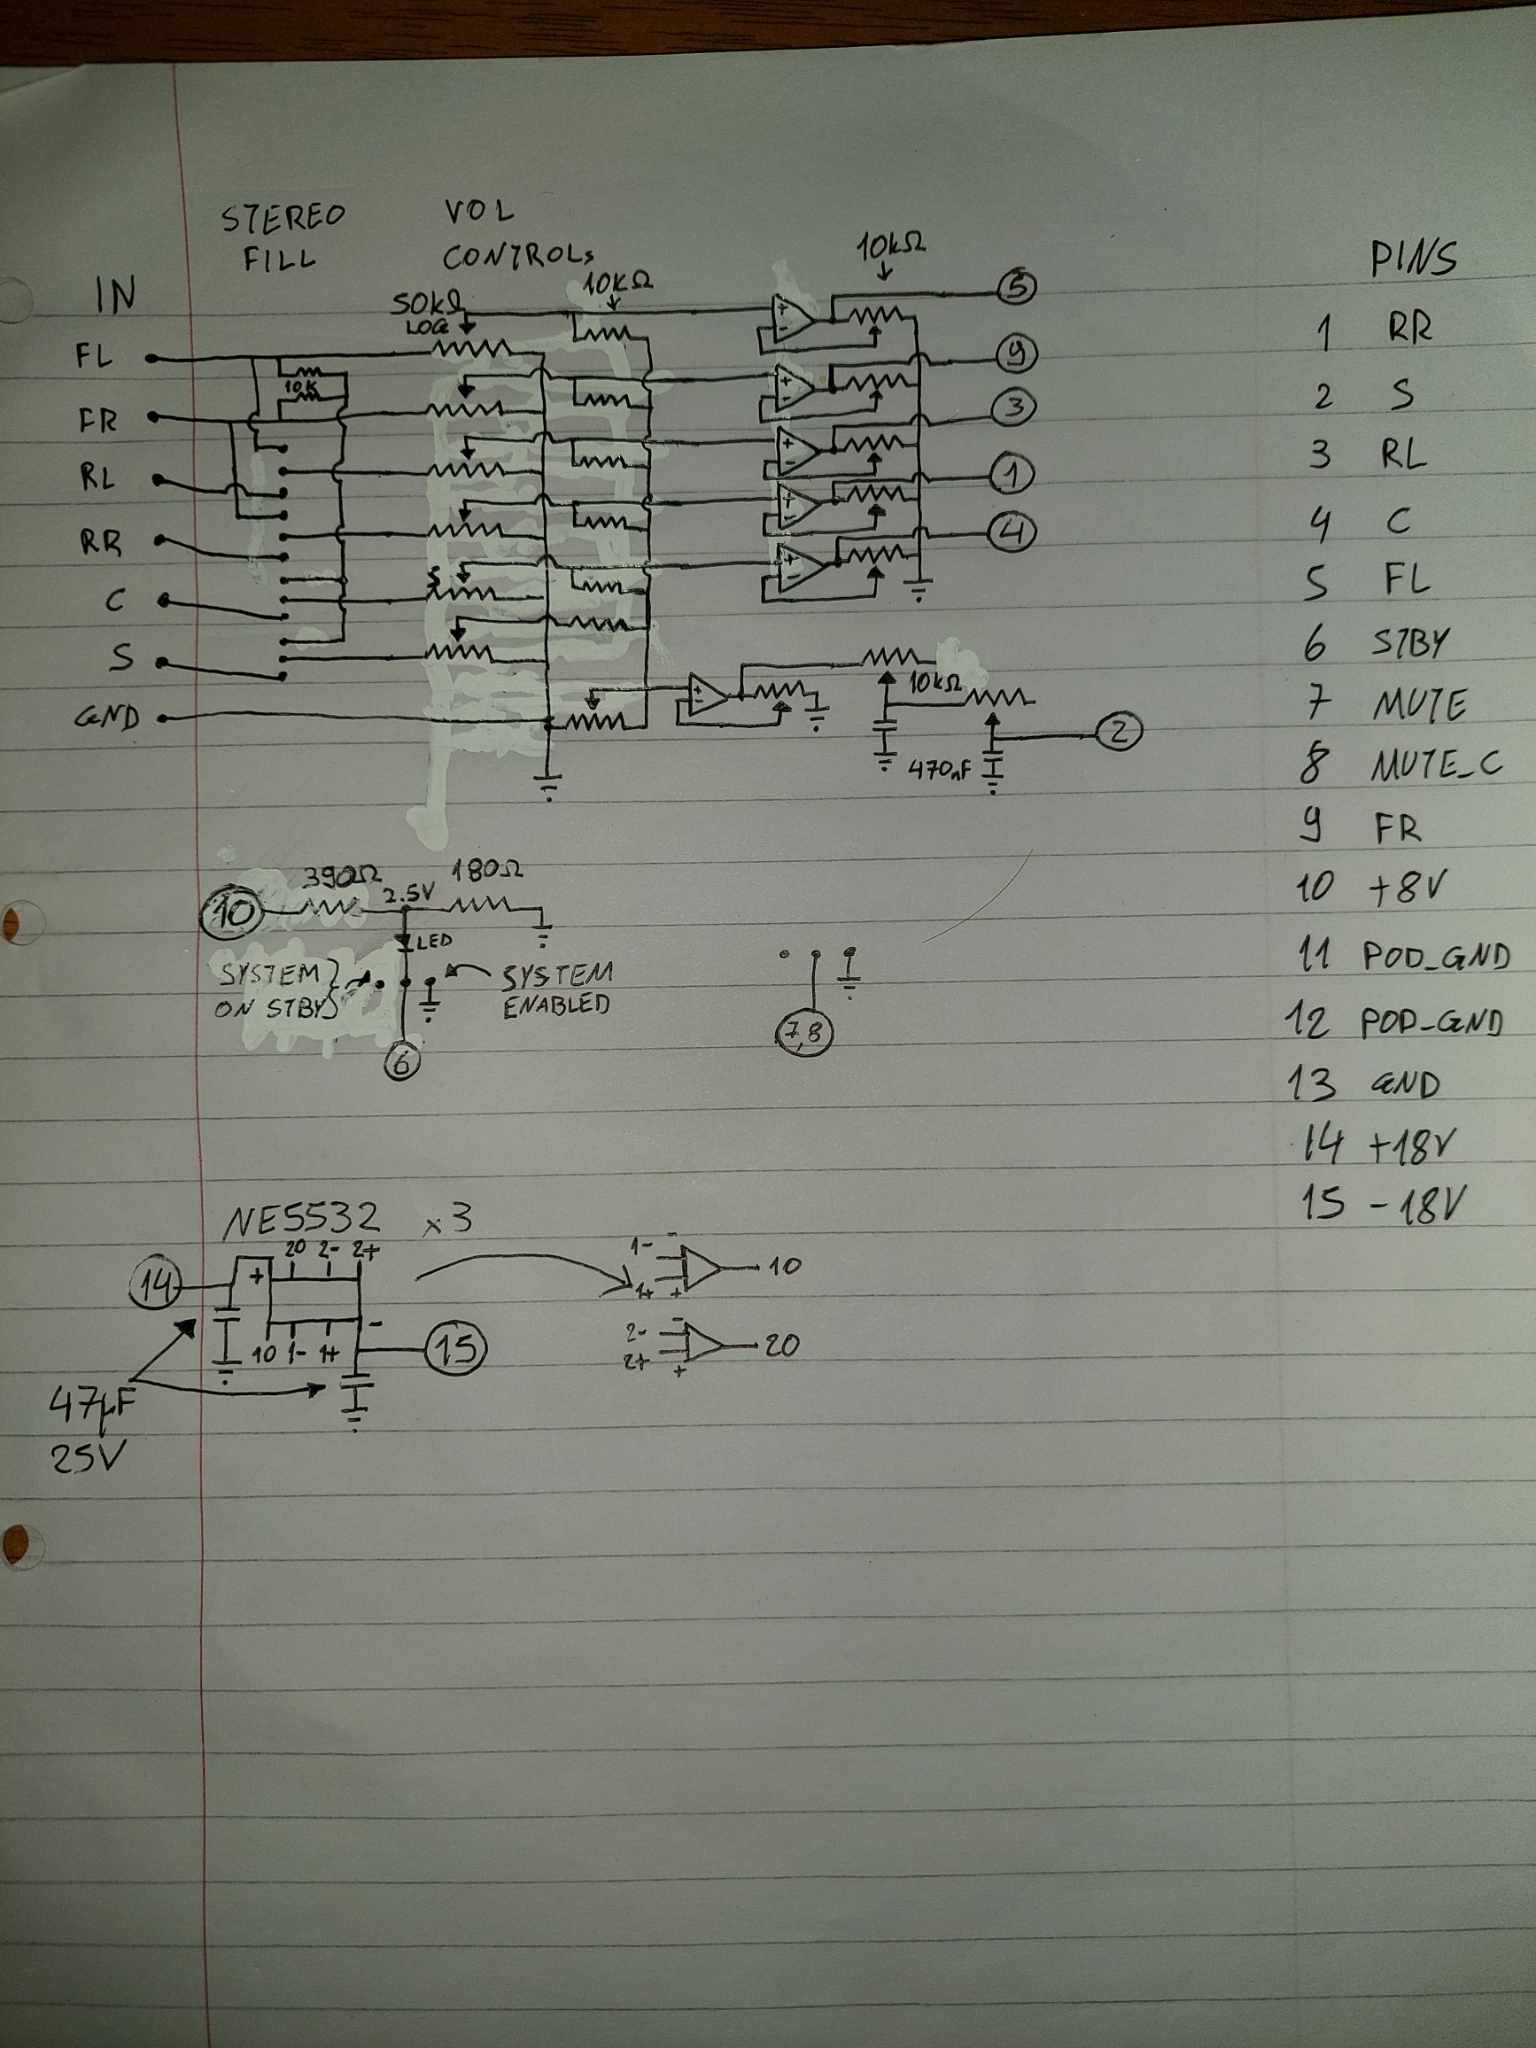 STEREO FILL
VOL CONTROLs
IN
50kΩ LOG
10kΩ
10kΩ
PINS
FL
FR
RL
RR
C
S
GND
10K
+
-
+
-
+
-
+
-
+
-
+
-
5
9
3
1
4
10kΩ
470nF
2
1 RR
2 S
3 RL
4 C
5 FL
6 STBY
7 MUTE
8 MUTE_C
9 FR
10 +8V
11 POD_GND
12 POD_GND
13 GND
14 +18V
15 -18V
10
390Ω
2.5V
180Ω
LED
SYSTEM ON STBY
SYSTEM ENABLED
6
7,8
NE5532 x3
14
+
20 2- 2+
-
10 1- 1+
15
47µF
25V
1- -
1+ +
10
2- -
2+ +
20